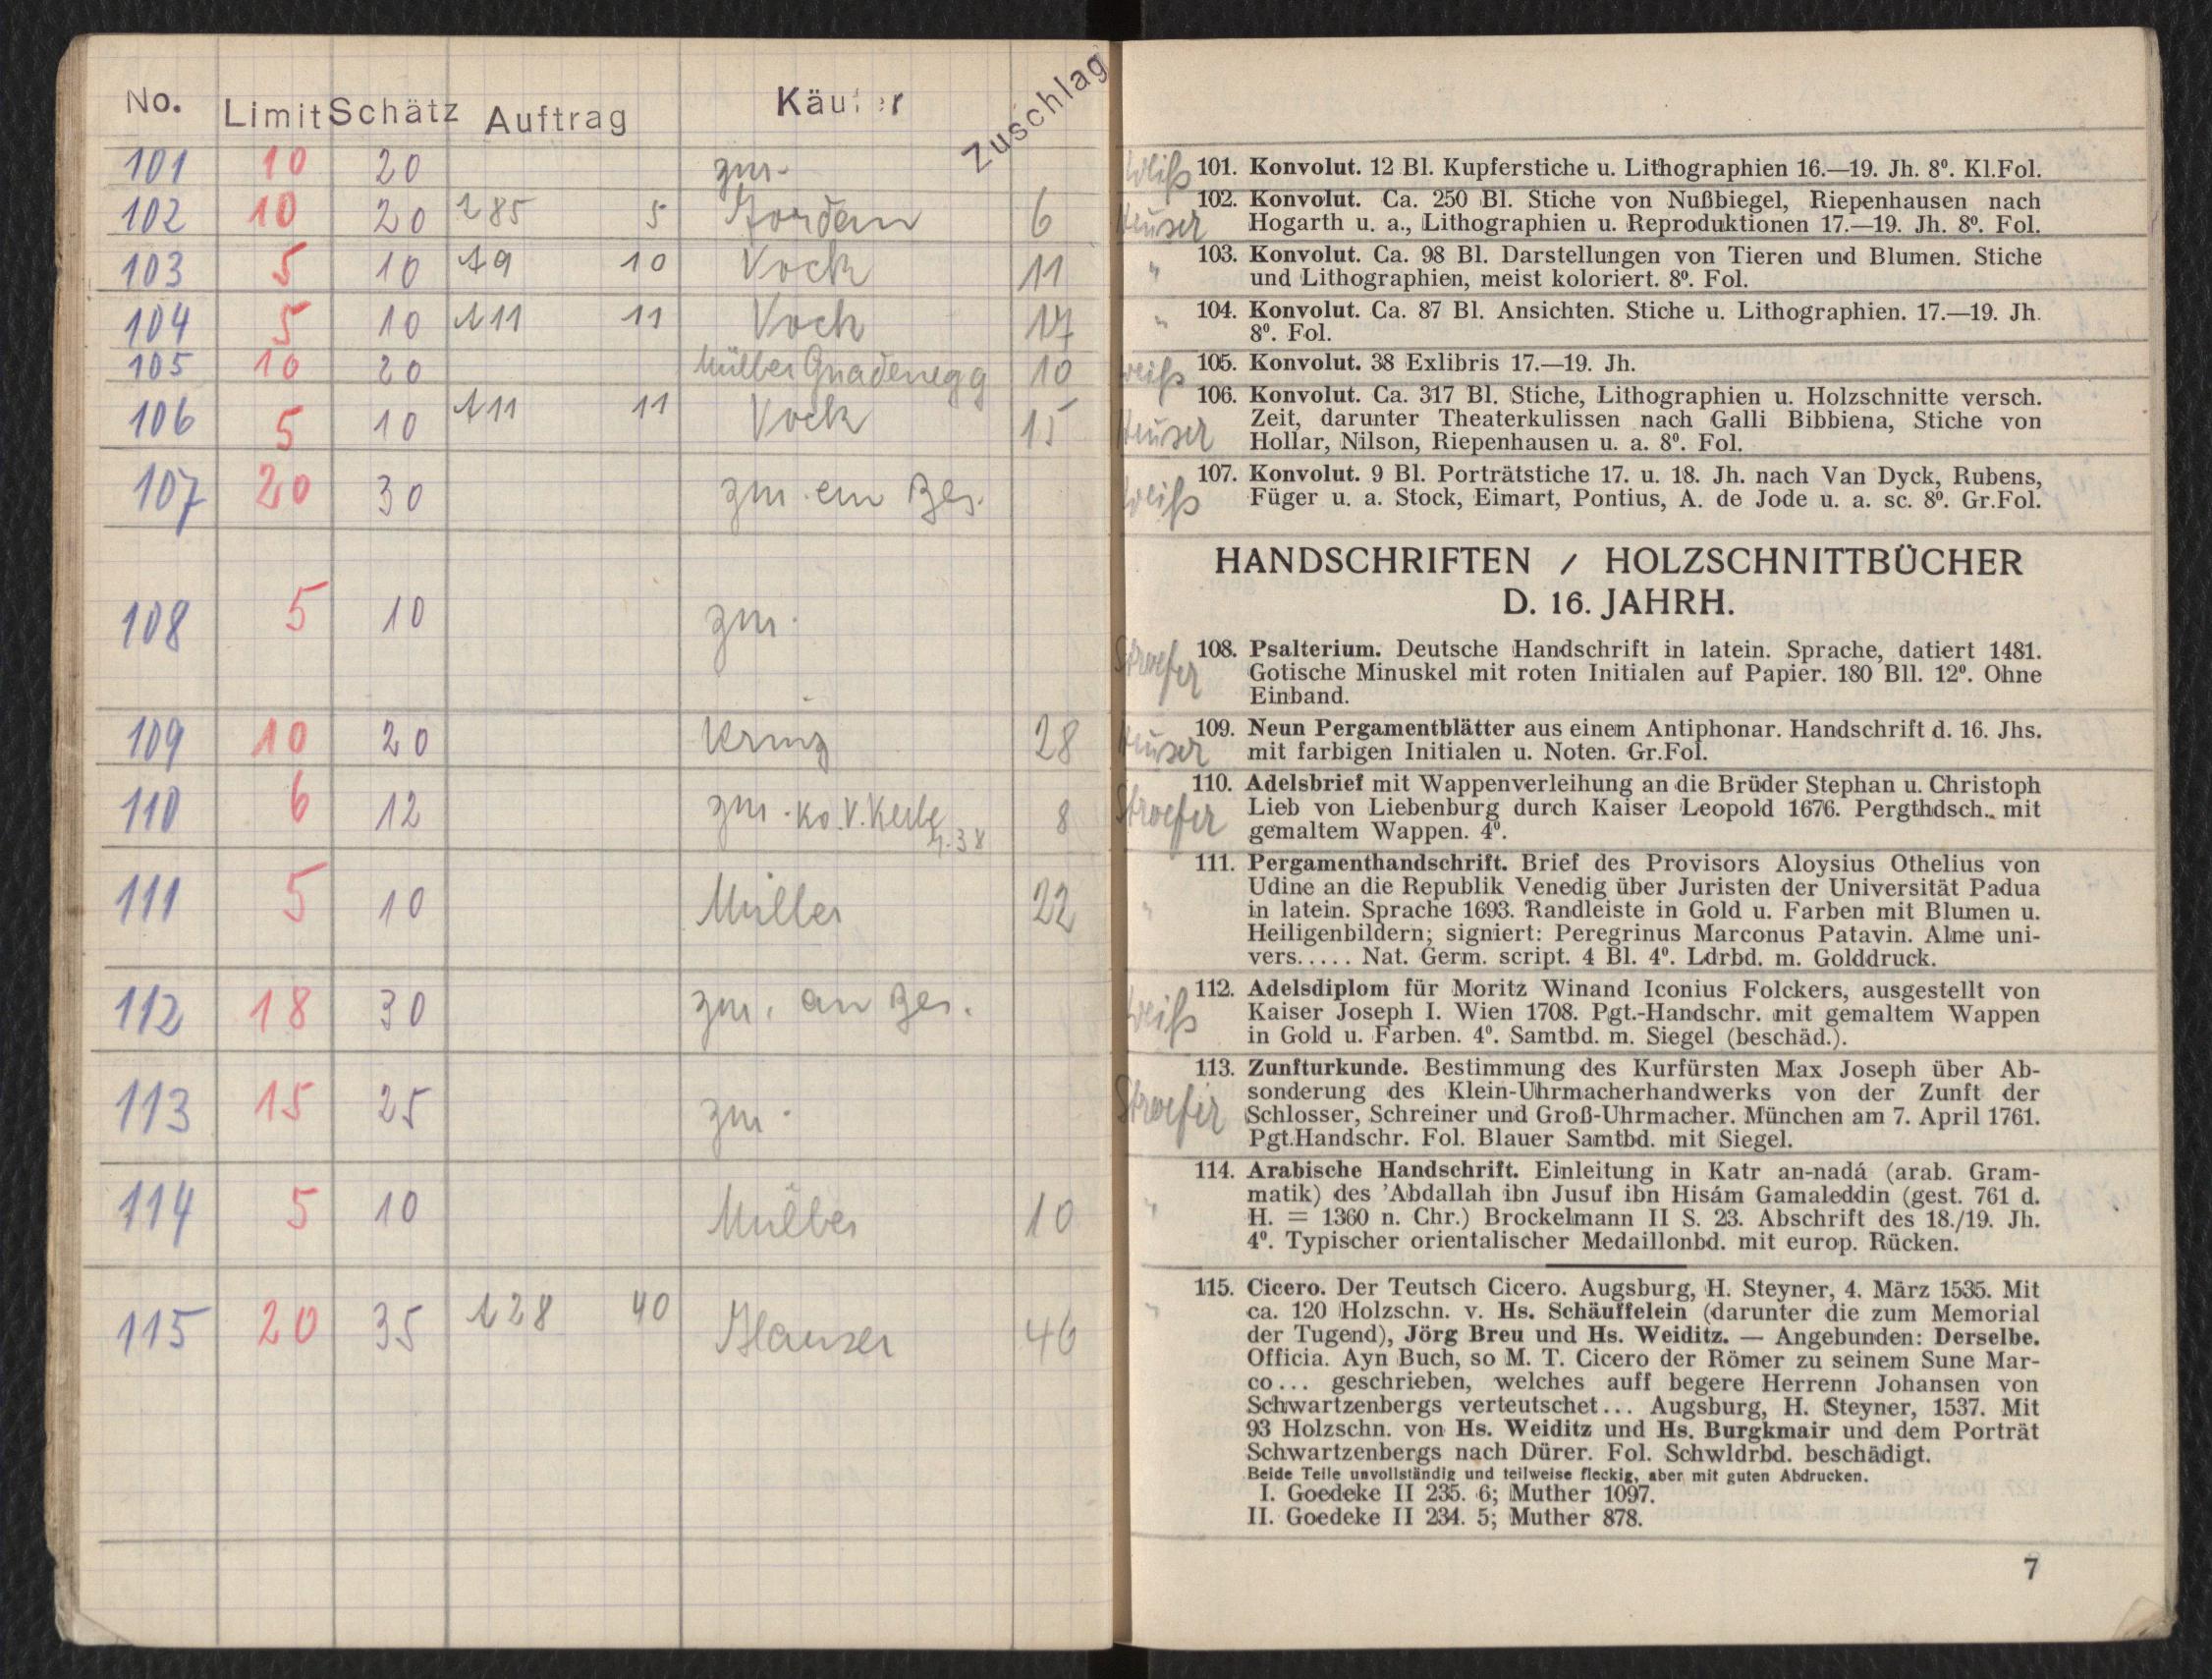 No. Limit Schätz Auftrag Käufer Zuschlag
101 10 20 zur.
102 10 20 285 5 Jordan 6
103 5 10 19 10 Vock 11
104 5 10 111 11 Vock 17
105 10 20 Müller Gnadenegg 10
106 5 10 111 11 Vock 15
107 20 30 zur. an Bes.
108 5 10 zur.
109 10 20 28
110 6 12 zur. 8
111 5 10 Müller 22
112 18 30 zur. an Bes.
113 15 25 zur.
114 5 10 Müller 10
115 20 35 128 40 Hauser 46
Weiß 101. Konvolut. 12 Bl. Kupferstiche u. Lithographien 16.—19. Jh. 8º. Kl.Fol.
102. Konvolut. Ca. 250 Bl. Stiche von Nußbiegel, Riepenhausen nach
Heuser Hogarth u. a., Lithographien u. Reproduktionen 17.—19. Jh. 8º. Fol.
103. Konvolut. Ca. 98 Bl. Darstellungen von Tieren und Blumen. Stiche
" und Lithographien, meist koloriert. 8º. Fol.
" 104. Konvolut. Ca. 87 Bl. Ansichten. Stiche u. Lithographien. 17.—19. Jh.
8º. Fol.
Weiß 105. Konvolut. 38 Exlibris 17.—19. Jh.
106. Konvolut. Ca. 317 Bl. Stiche, Lithographien u. Holzschnitte versch.
Zeit, darunter Theaterkulissen nach Galli Bibbiena, Stiche von
Heuser Hollar, Nilson, Riepenhausen u. a. 8º. Fol.
107. Konvolut. 9 Bl. Porträtstiche 17. u. 18. Jh. nach Van Dyck, Rubens,
Weiß Füger u. a. Stock, Eimart, Pontius, A. de Jode u. a. sc. 8º. Gr.Fol.
HANDSCHRIFTEN / HOLZSCHNITTBÜCHER
D. 16. JAHRH.
Stroefer 108. Psalterium. Deutsche Handschrift in latein. Sprache, datiert 1481.
Gotische Minuskel mit roten Initialen auf Papier. 180 Bll. 12º. Ohne
Einband.
109. Neun Pergamentblätter aus einem Antiphonar. Handschrift d. 16. Jhs.
Heuser mit farbigen Initialen u. Noten. Gr.Fol.
110. Adelsbrief mit Wappenverleihung an die Brüder Stephan u. Christoph
Stroefer Lieb von Liebenburg durch Kaiser Leopold 1676. Pergthdsch. mit
gemaltem Wappen. 4º.
111. Pergamenthandschrift. Brief des Provisors Aloysius Othelius von
Udine an die Republik Venedig über Juristen der Universität Padua
" in latein. Sprache 1693. Randleiste in Gold u. Farben mit Blumen u.
Heiligenbildern; signiert: Peregrinus Marconus Patavin. Alme uni-
vers..... Nat. Germ. script. 4 Bl. 4º. Ldrbd. m. Golddruck.
112. Adelsdiplom für Moritz Winand Iconius Folckers, ausgestellt von
Weiß Kaiser Joseph I. Wien 1708. Pgt.-Handschr. mit gemaltem Wappen
in Gold u. Farben. 4º. Samtbd. m. Siegel (beschäd.).
113. Zunfturkunde. Bestimmung des Kurfürsten Max Joseph über Ab-
sonderung des Klein-Uhrmacherhandwerks von der Zunft der
Stroefer Schlosser, Schreiner und Groß-Uhrmacher. München am 7. April 1761.
Pgt.Handschr. Fol. Blauer Samtbd. mit Siegel.
114. Arabische Handschrift. Einleitung in Katr an-nadá (arab. Gram-
matik) des 'Abdallah ibn Jusuf ibn Hisám Gamaleddin (gest. 761 d.
" H. = 1360 n. Chr.) Brockelmann II S. 23. Abschrift des 18./19. Jh.
4º. Typischer orientalischer Medaillonbd. mit europ. Rücken.
115. Cicero. Der Teutsch Cicero. Augsburg, H. Steyner, 4. März 1535. Mit
" ca. 120 Holzschn. v. Hs. Schäuffelein (darunter die zum Memorial
der Tugend), Jörg Breu und Hs. Weiditz. — Angebunden: Derselbe.
Officia. Ayn Buch, so M. T. Cicero der Römer zu seinem Sune Mar-
co... geschrieben, welches auff begere Herrenn Johansen von
Schwartzenbergs verteutschet... Augsburg, H. Steyner, 1537. Mit
93 Holzschn. von Hs. Weiditz und Hs. Burgkmair und dem Porträt
Schwartzenbergs nach Dürer. Fol. Schwldrbd. beschädigt.
Beide Teile unvollständig und teilweise fleckig, aber mit guten Abdrucken.
I. Goedeke II 235. 6; Muther 1097.
II. Goedeke II 234. 5; Muther 878.
7